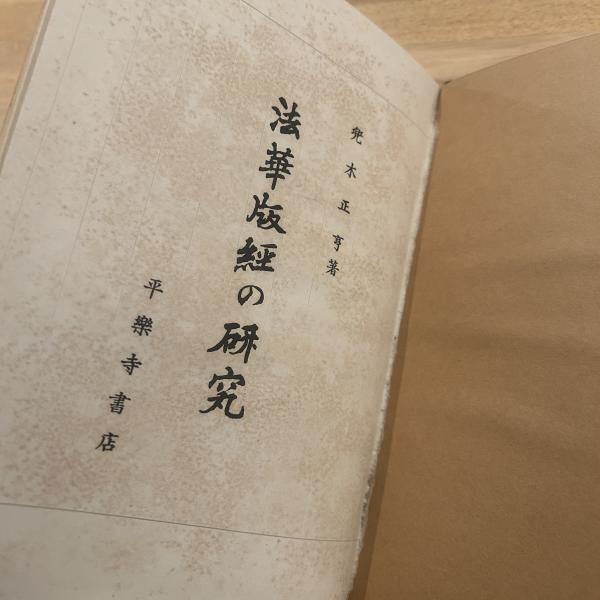 兜木正亨著
法華版経の研究
平樂寺書店